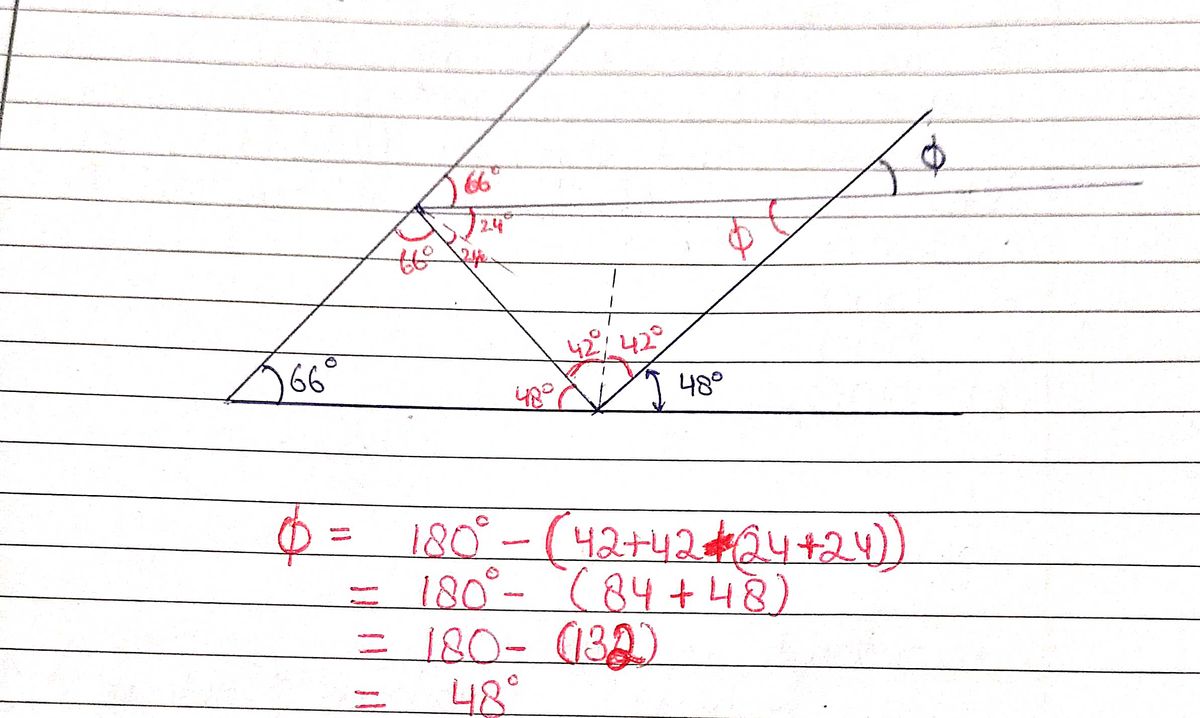 ϕ
66°
24°
ϕ
66°
24
42° 42°
66°
48°
48°
ϕ = 180° - (42+42+(24+24))
= 180° - (84+48)
= 180 - (132)
= 48°